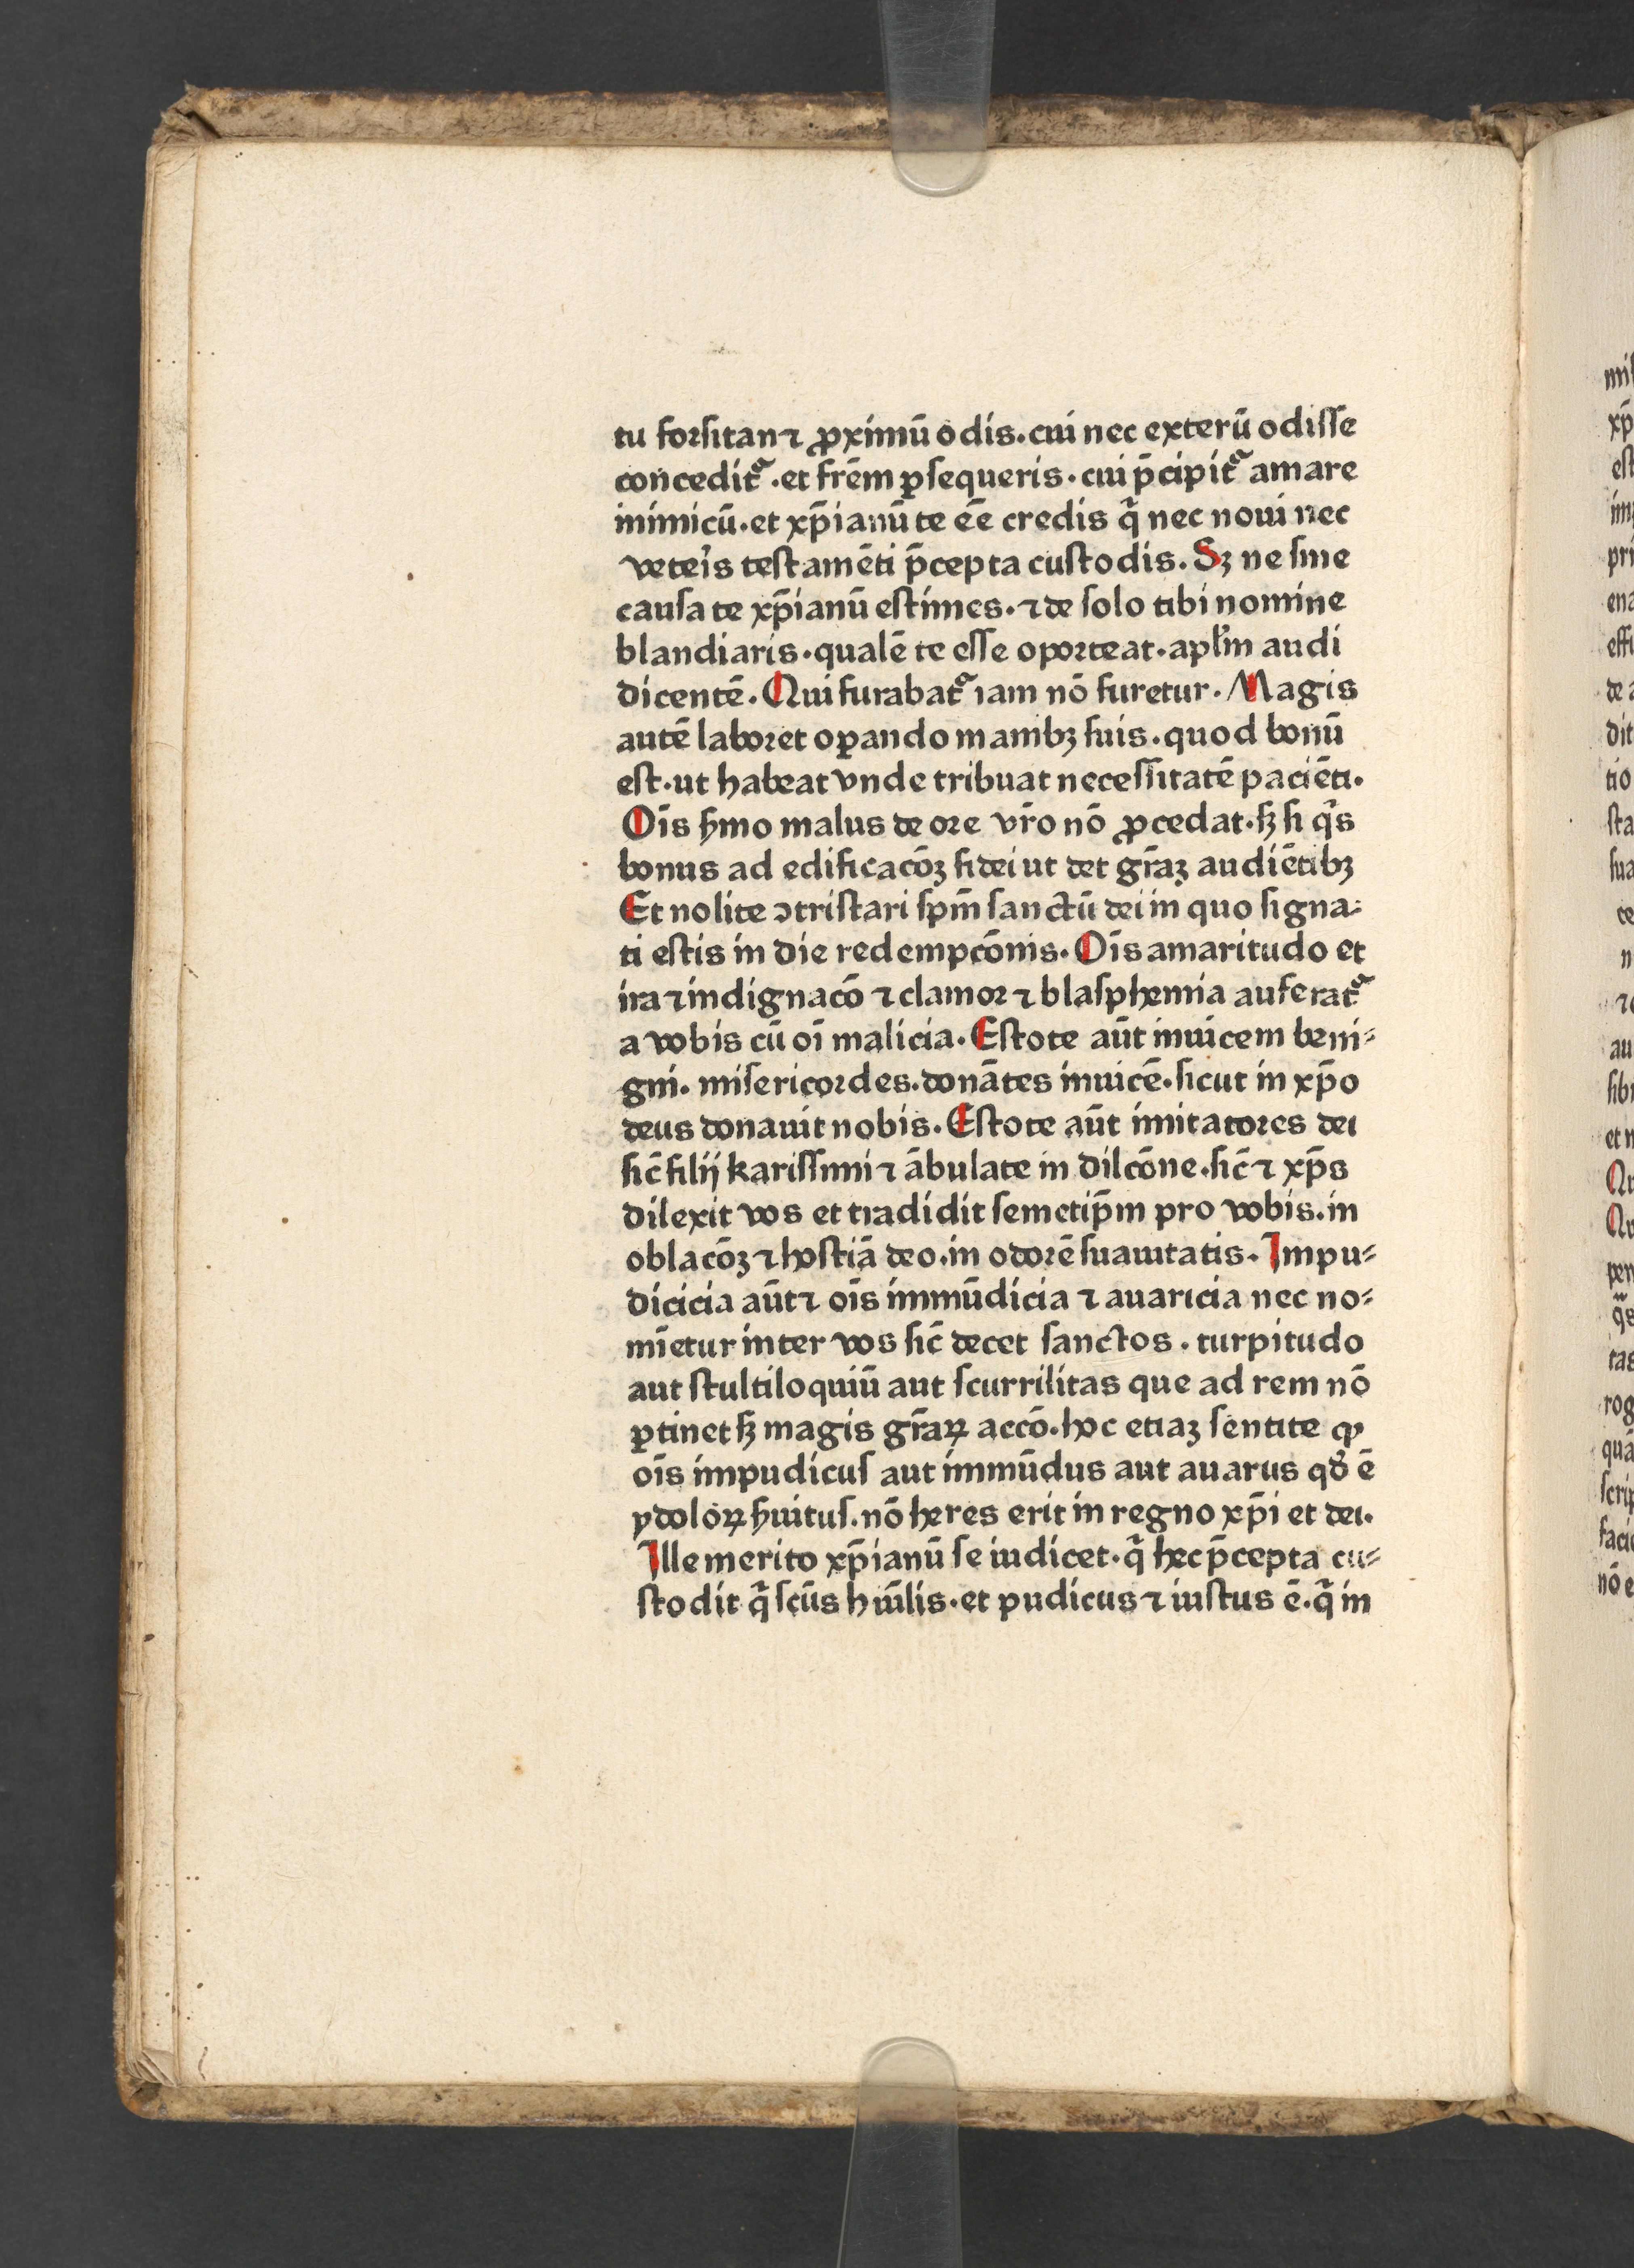 tu forſitan ⁊ ꝓximū odis. cui nec exterū odiſſe
concedit᷑. et frēm ꝑſequeris. cui p̄cipit᷑ amare
inimicū. et xp̄ianū te eē credis q̇ nec noui nec
veteꝭs teſtamēti p̄cepta cuſtodis. Sꝫ ne ſine
cauſa te xp̄ianū eſtimes. ⁊ de ſolo tibi nomine
blandiaris. qualē te eſſe oporteat. apl̄m audi
dicentē. Qui furabat᷑ iam nō furetur. Magis
autē laboret oꝑando manibꝫ ſuis. quod bonū
eſt. ut habeat vnde tribuat neceſſitatē paciēti.
Oīs ẜmo malus de ore vr̄o nō ꝓcedat. ſꝫ ſi qͥs
bonus ad edificacōꝫ fidei ut det gr̄aꝫ audiētibꝫ
Et nolite ꝯtriſtari ſpm̄ ſanctū dei in quo ſigna⸗
ti eſtis in die redempcōnis. Oīs amaritudo et
ira ⁊ indignacō ⁊ clamor ⁊ blaſphemia auferat᷑
a vobis cū oī malicia. Eſtote aūt inuicem beni⸗
gni. miſericordes. donātes inuicē. ſicut in xp̄o
deus donauit nobis. Eſtote aūt imitatores dei
ſic̄ filij kariſſimi ⁊ ābulate in dilcōne. ſic̄ ⁊ xp̄s
dilexit vos et tradidit ſemetip̄m pro vobis. in
oblacōꝫ ⁊ hoſtiā deo. in odorē ſuauitatis. Impu⸗
dicicia aūt ⁊ oīs immūdicia ⁊ auaricia nec no⸗
mīetur inter vos ſic̄ decet ſanctos. turpitudo
aut ſtultiloquiū aut ſcurrilitas que ad rem nō
ꝑtinet ſꝫ magis gr̄aꝝ accō. hoc etiaꝫ ſentite ꝙ
oīs impudicuſ aut immūdus aut auarus qd̕ ē
ydoloꝝ ẜuituſ. nō heres erit in regno xp̄i et dei.
Ille merito xp̄ianū ſe iudicet. qͥ hec p̄cepta cu⸗
ſtodit qͥ ſcūs hūilis. et pudicus ⁊ iuſtus ē. qͥ in